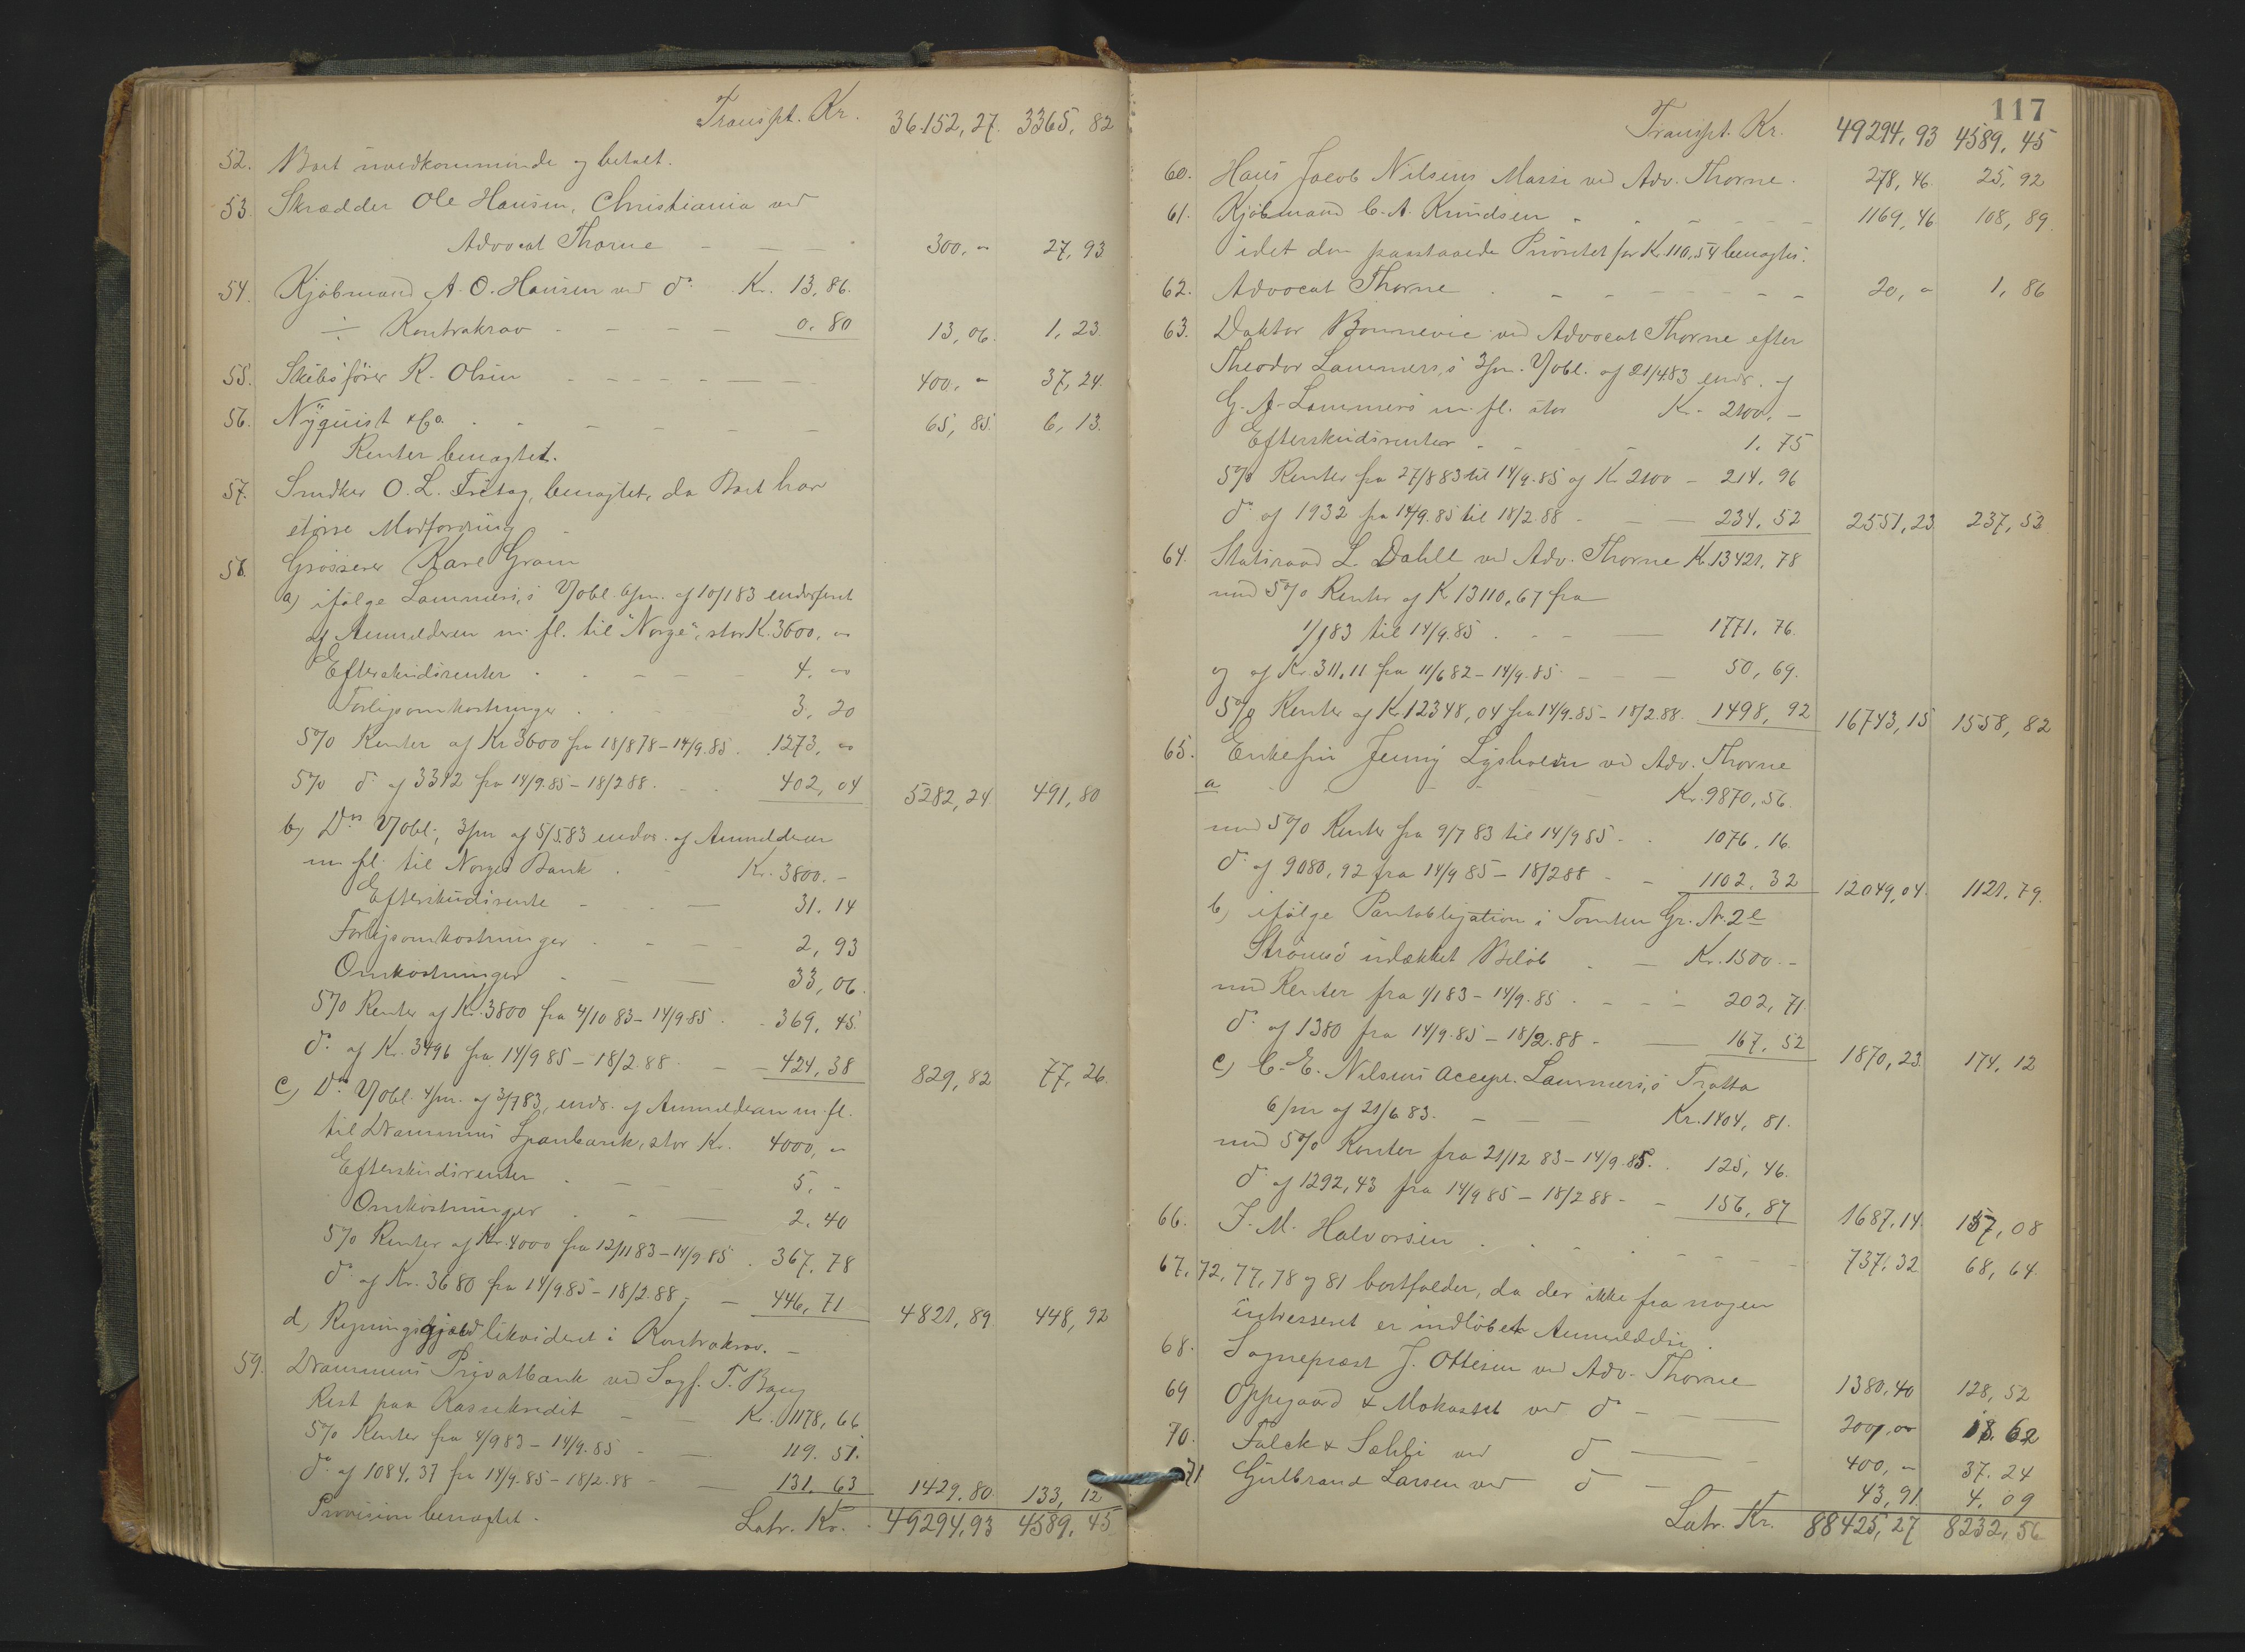 Transpt. Kr. 36152,27. 3365,82
52. Boet uvedkommende og betalt.
53. Skrædder Ole Hansen, Christiania ved
Advocat Thorne - - - 300,- 27,93
54. Kjøbmand A. O. Hansen ved do. Kr. 13,86.
÷ Kontrakrav - - - - 0.80 13,06. 1,23.
55. Skibsfører R. Olsen - - - - - - 400,- 37,24.
56. Nÿquist & Co. - - - - - 65,85. 6,13.
Renter benægtet.
57. Snedker O. L. Fritag, benægtet, da Boet har
større Modfordring
58. Grosserer Karl Gram
a) ifølge Lammers's Vobl. 6/m. af 10/1 83 endosseret
af Anmelderen m. fl. til "Norge", stor K. 3600,00
Efterskudsrenter - - - - 4.00
Forligsomkostninger - - - 3.20
5% Renter af Kr 3600 fra 18/8 78-14/9.85. 1273.00
5% do af 3312 fra 14/9.85-18/2 88. - - 402,04 5282,24 491,80
b) Ds Vobl. 3/m af 5/5 83 endos. af Anmelderen
m. fl. til Norges Bank - - Kr. 3800.-
Efterskudsrente - - - 31.14
Forligsomkostninger - - - 2,93
Omkostninger - - - 33,06.
5% Renter af Kr. 3800 fra 4/10 83-14/9 85 - 369,45.
do. af Kr. 3496 fra 14/9 85-18/2.88 - - 424,38 829,82 77,26.
c) Ds Vobl. 4/m. af 3/7 83, ends. af Anmelderen m. fl.
til Drammens Sparebank, stor Kr. 4000,-
Efterskudsrenter - - - 5.-
Omkostninger - - - 2.40
5% Renter af Kr. 4000 fra 12/11 83-14/9 85. 367.78
do af Kr. 3680 fra 14/9 85-18/2.88; - 446,71 4821,89 448,92
d) Regningsgjæld likvideret i Kontrakrav. -
59. Drammens Privatbank ved Sagf. T. Bang
Rest paa Kassekredit - - Kr. 1178,66
5% Renter fra 4/9 83-14/9.85 - - 119.51.
do. af 1084,37 fra 14/9.85-18/2.88 - - 131.63 1429.80 133,12
Provision benægtet. Latr. Kr. 49294,93 4589,45
117
Transpt. Kr. 49294,93 4589,45
60. Hans Jacob Nilsens Masse ved Adv. Thorne. 278,46. 25,92
61. Kjøbmand C. A. Knudsen - - - - 1169,46 108,89.
idet den paastaaede Prioritet for Kr. 110,54 benægtes.
62. Advocat Thorne - - - - - - 20,- 1,86
63. Doktor Bonnevie ved Advocat Thorne efter
Theodor Lammers,s 3/m. Vobl. af 21/4 83 ends. af
G. A. Lammers m. fl. stor Kr. 2100,-
Efterskudsrenter - - - 1.75
5% Renter fra 27/8 83 til 14/9.85 af K 2100 - 214.96
do af 1932 fra 14/9.85 til 18/2.88 - - 234.52 2551,23. 237,53
64. Statsraad L. Dahll ved Adv. Thorne Kr. 13421.78
med 5% Renter af K 13110.67 fra
1/1 83 til 14/9.85 - - - 1771.76.
og af Kr. 311,11 fra 11/6 82-14/9.85 - - - 50,69.
5% Renter af K 12348,04 fra 14/9.85-18/2.88. 1498,92 16743,15 1558,82
65. Enkefru Jenny Lysholm ved Adv. Thorne
a - - - - - Kr. 9870,56.
med 5% Renter fra 9/7 83 til 14/9 85 - - 1076.16.
do. af 9080,92 fra 14/9 85-18/2 88 - - 1102.32 12049,04. 1121,79.
b) ifølge Pantobligation i Tomten Gr. N. 2e
Strømsø udækket Beløb - - Kr. 1500.-
med Renter fra 1/1 83-14/9.85 - - - 202,71
do. af 1380 fra 14/9.85-18/2.88 - - 167.52 1870,23. 174,12
c) C. E. Nilsens accept. Lammers,s Tratta
6/m af 21/6 83. - - - Kr. 1404,81.
med 5% Renter fra 21/12 83-14/9.85. - 125,46.
do. af 1292,43 fra 14/9 85-18/2 88 - - 156,87 1687.14. 157,08
66. J. M. Halvorsen - - - - - - 737.32 68,64.
67, 72, 77, 78 og 81 bortfalder, da der ikke fra nogen
interesseret er indløbet Anmeldelse.
68. Sognepræst J. Ottesen ved Adv. Thorne 1380,40 128,52
69 Oppegaard & Mokastet ved do - - 200,00 18.62
70. Falck & Sæhli ved do - - 400,- 37.24
71 Gulbrand Larsen ved do - 43,91. 4.09
Latr. Kr. 88425,27 8232,56